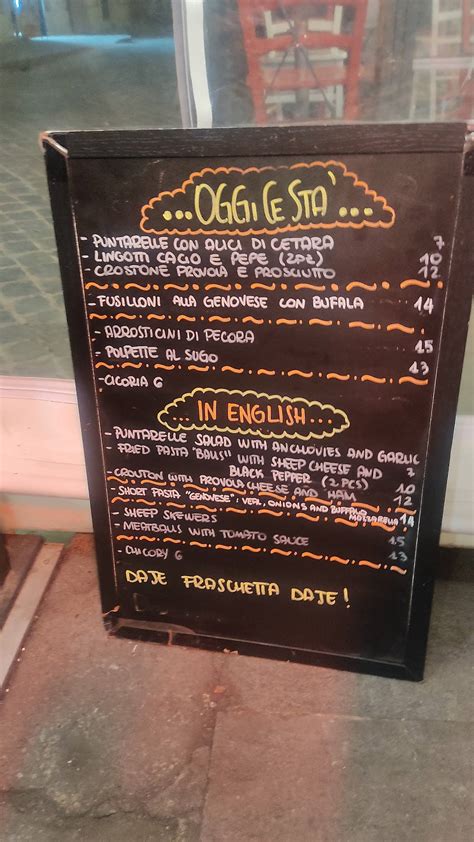 ...OGGI CE STA'...
- PUNTARELLE CON ALICI DI CETARA 7
- LINGOTTI CACIO E PEPE (2PZ) 10
- CROSTONE PROVOLA E PROSCIUTTO 12
- FUSILLONI ALLA GENOVESE CON BUFALA 14
- ARROSTICINI DI PECORA 15
- POLPETTE AL SUGO 13
- CICORIA 6
... IN ENGLISH...
- PUNTARELLE SALAD WITH ANCHOVIES AND GARLIC 7
- FRIED PASTA "BALLS" WITH SHEEP CHEESE AND
BLACK PEPPER (2 PCS) 10
- CROUTON WITH PROVOLA CHEESE AND HAM 12
- SHORT PASTA "GENOVESE": VEAL, ONIONS AND BUFFALO
MOZZARELLA 14
- SHEEP SKEWERS 15
- MEATBALLS WITH TOMATO SAUCE 13
- CHICORY 6
DAJE FRASCHETTA DAJE!